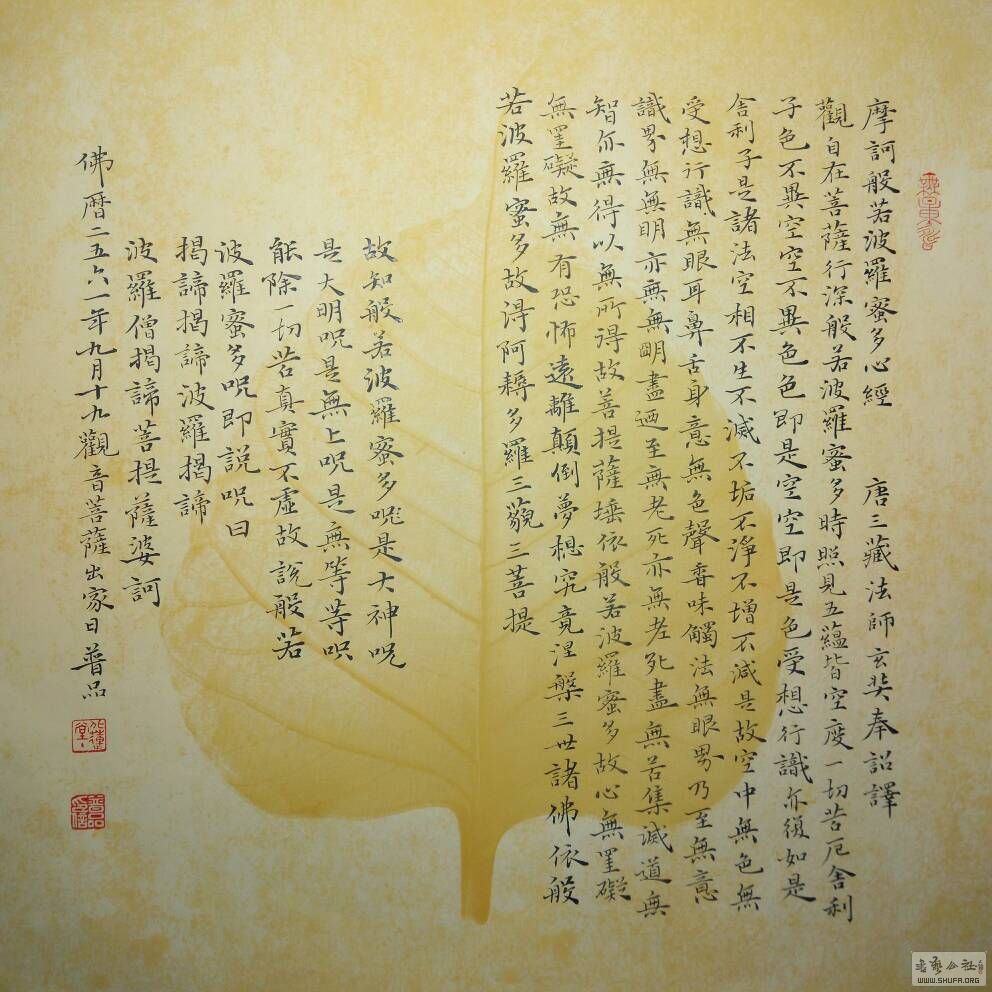 摩訶般若波羅蜜多心經 唐三藏法師玄奘奉詔譯
觀自在菩薩行深般若波羅蜜多時照見五蘊皆空度一切苦厄舍利
子色不異空空不異色色即是空空即是色受想行識亦復如是
舍利子是諸法空相不生不滅不垢不淨不增不減是故空中無色無
受想行識無眼耳鼻舌身意無色聲香味觸法無眼界乃至無意
識界無無明亦無無明盡廼至無老死亦無老死盡無苦集滅道無
智亦無得以無所得故菩提薩埵依般若波羅蜜多故心無罣礙
無罣礙故無有恐怖遠離顛倒夢想究竟涅槃三世諸佛依般
若波羅蜜多故得阿耨多羅三藐三菩提
故知般若波羅蜜多呪是大神呪
是大明呪是無上呪是無等等呪
能除一切苦真實不虛故說般若
波羅蜜多呪即說呪曰
揭諦揭諦波羅揭諦
波羅僧揭諦菩提薩婆訶
佛曆二五六一年九月十九觀音菩薩出家日普品
WWW.SHUFA.ORG